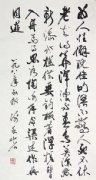 為人性僻耽佳句語不驚人死不休
老去詩篇渾漫與春來花鳥莫深愁
新添水檻供垂釣故著浮槎替
入舟焉得思如陶謝手令渠述作與
同遊